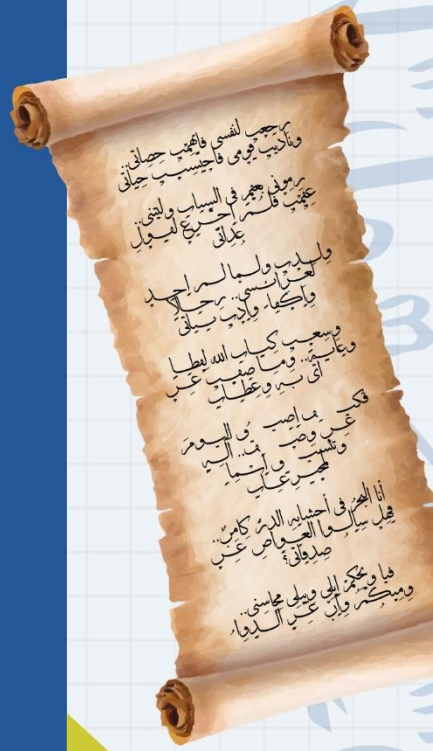 رجعت لنفسي فاتهمت حصاتي..
وناديت قومي فاحتسبت حياتي
رموني بعقم في الشباب وليتني..
عقمت فلم أجزع لقول
عداتي
ولدت ولما لم أجد
لعرائسي.. رجالا
وأكفاء وأدت بناتي
وسعت كتاب الله لفظا
وغاية.. وما ضقت عن
آي به وعظات
فكيف أضيق اليوم
عن وصف آلة
وتنسيق أسماء
أنا البحر في أحشائه الدر كامن..
فهل سألوا الغواص عن
صدفاتي؟
فيا ويحكم أبلى وتبلى محاسني..
ومنكم وإن عز الدواء